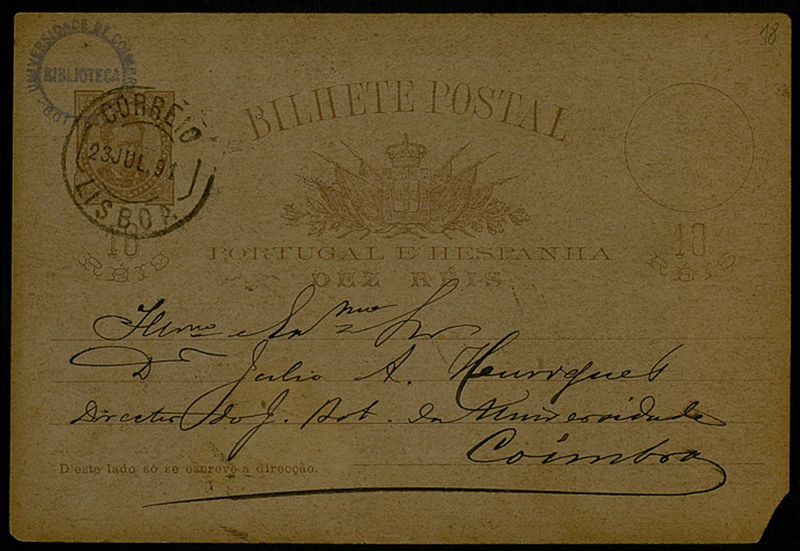 18
UNIVERSIDADE DE COIMBRA
BIBLIOTECA
BOT
CORREIO
23 JUL. 91
LISBOA
BILHETE POSTAL
PORTUGAL E HESPANHA
DEZ RÉIS
10
RÉIS
10
RÉIS
Illmo e Exmo Sr
Dr Julio A. Henriques
Director do J. Bot. da Universidade
Coimbra
D'este lado só se escreve a direcção.